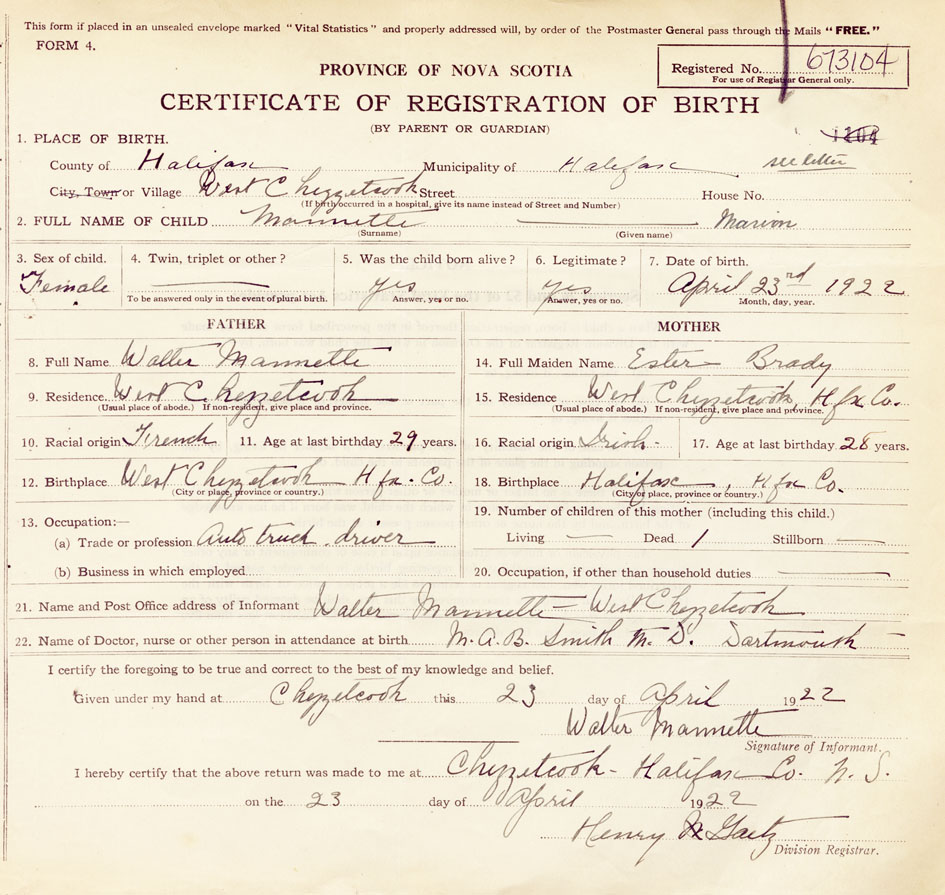 This form if placed in an unsealed envelope marked "Vital Statistics" and properly addressed will, by order of the Postmaster General pass through the Mails "FREE."
FORM 4.
Registered No. 673104
For use of Registrar General only.
PROVINCE OF NOVA SCOTIA
CERTIFICATE OF REGISTRATION OF BIRTH
(BY PARENT OR GUARDIAN)
1. PLACE OF BIRTH.
County of Halifax Municipality of Halifax see letter
City, Town or Village West Chezzetcook Street House No.
(If birth occurred in a hospital, give its name instead of Street and Number)
2. FULL NAME OF CHILD Mannette Marion
(Surname) (Given name)
3. Sex of child. 4. Twin, triplet or other? 5. Was the child born alive? 6. Legitimate? 7. Date of birth.
Female yes yes April 23rd 1922
To be answered only in the event of plural birth. Answer, yes or no. Answer, yes or no. Month, day, year.
FATHER
8. Full Name Walter Mannette
9. Residence West Chezzetcook
(Usual place of abode.) If non-resident, give place and province.
10. Racial origin French 11. Age at last birthday 29 years.
12. Birthplace West Chezzetcook Hfx. Co.
(City or place, province or country.)
13. Occupation:—
(a) Trade or profession Auto truck driver
(b) Business in which employed
MOTHER
14. Full Maiden Name Ester Brady
15. Residence West Chezzetcook, Hfx Co.
(Usual place of abode.) If non-resident, give place and province.
16. Racial origin Irish 17. Age at last birthday 28 years.
18. Birthplace Halifax, Hfx Co.
(City or place, province or country.)
19. Number of children of this mother (including this child.)
Living — Dead 1 Stillborn —
20. Occupation, if other than household duties
21. Name and Post Office address of Informant Walter Mannette — West Chezzetcook
22. Name of Doctor, nurse or other person in attendance at birth M. A. B. Smith M. D. Dartmouth
I certify the foregoing to be true and correct to the best of my knowledge and belief.
Given under my hand at Chezzetcook this 23 day of April 1922
Walter Mannette
Signature of Informant.
I hereby certify that the above return was made to me at Chezzetcook - Halifax Co. N. S.
on the 23 day of April 1922
Henry Gaetz
Division Registrar.